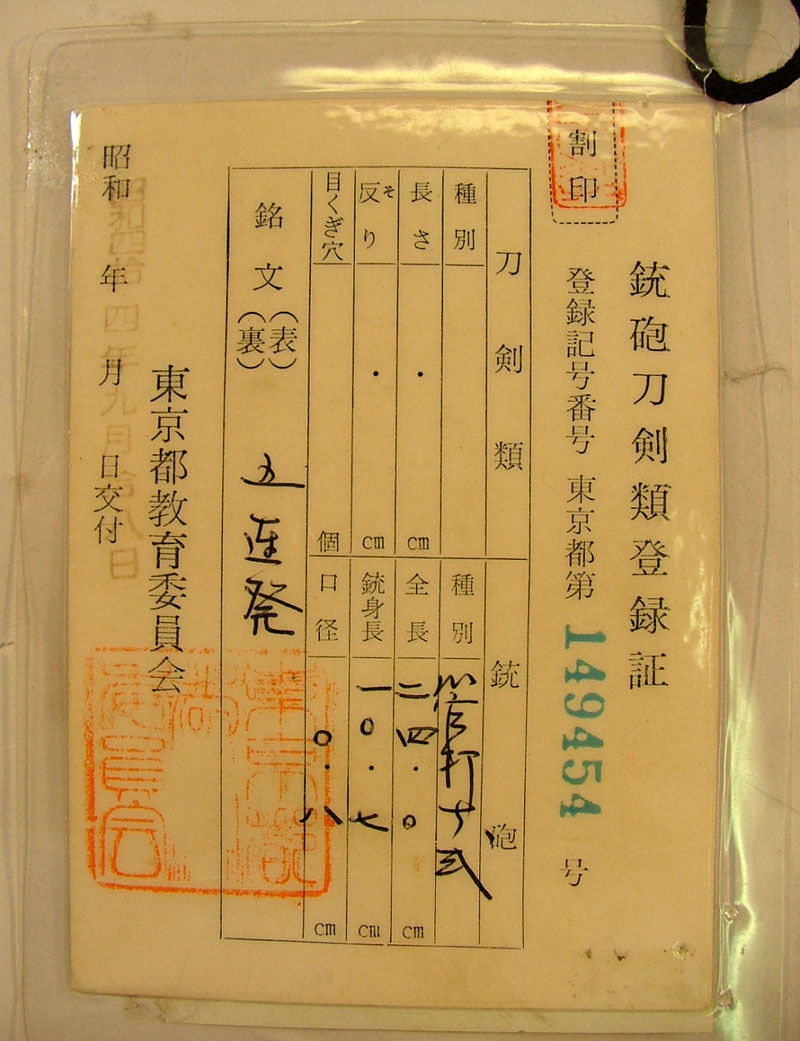 銃砲刀剣類登録証
割印
登録記号番号 東京都第 149454 号
刀剣類
種別
長さ ・ cm
反り そ ・ cm
目くぎ穴 個
銃砲
種別 管打十式
全長 二四・〇 cm
銃身長 一〇・七 cm
口径 〇・八 cm
銘文 (表)(裏) 五連発
東京都教育委員会
昭和 年 月 日交付